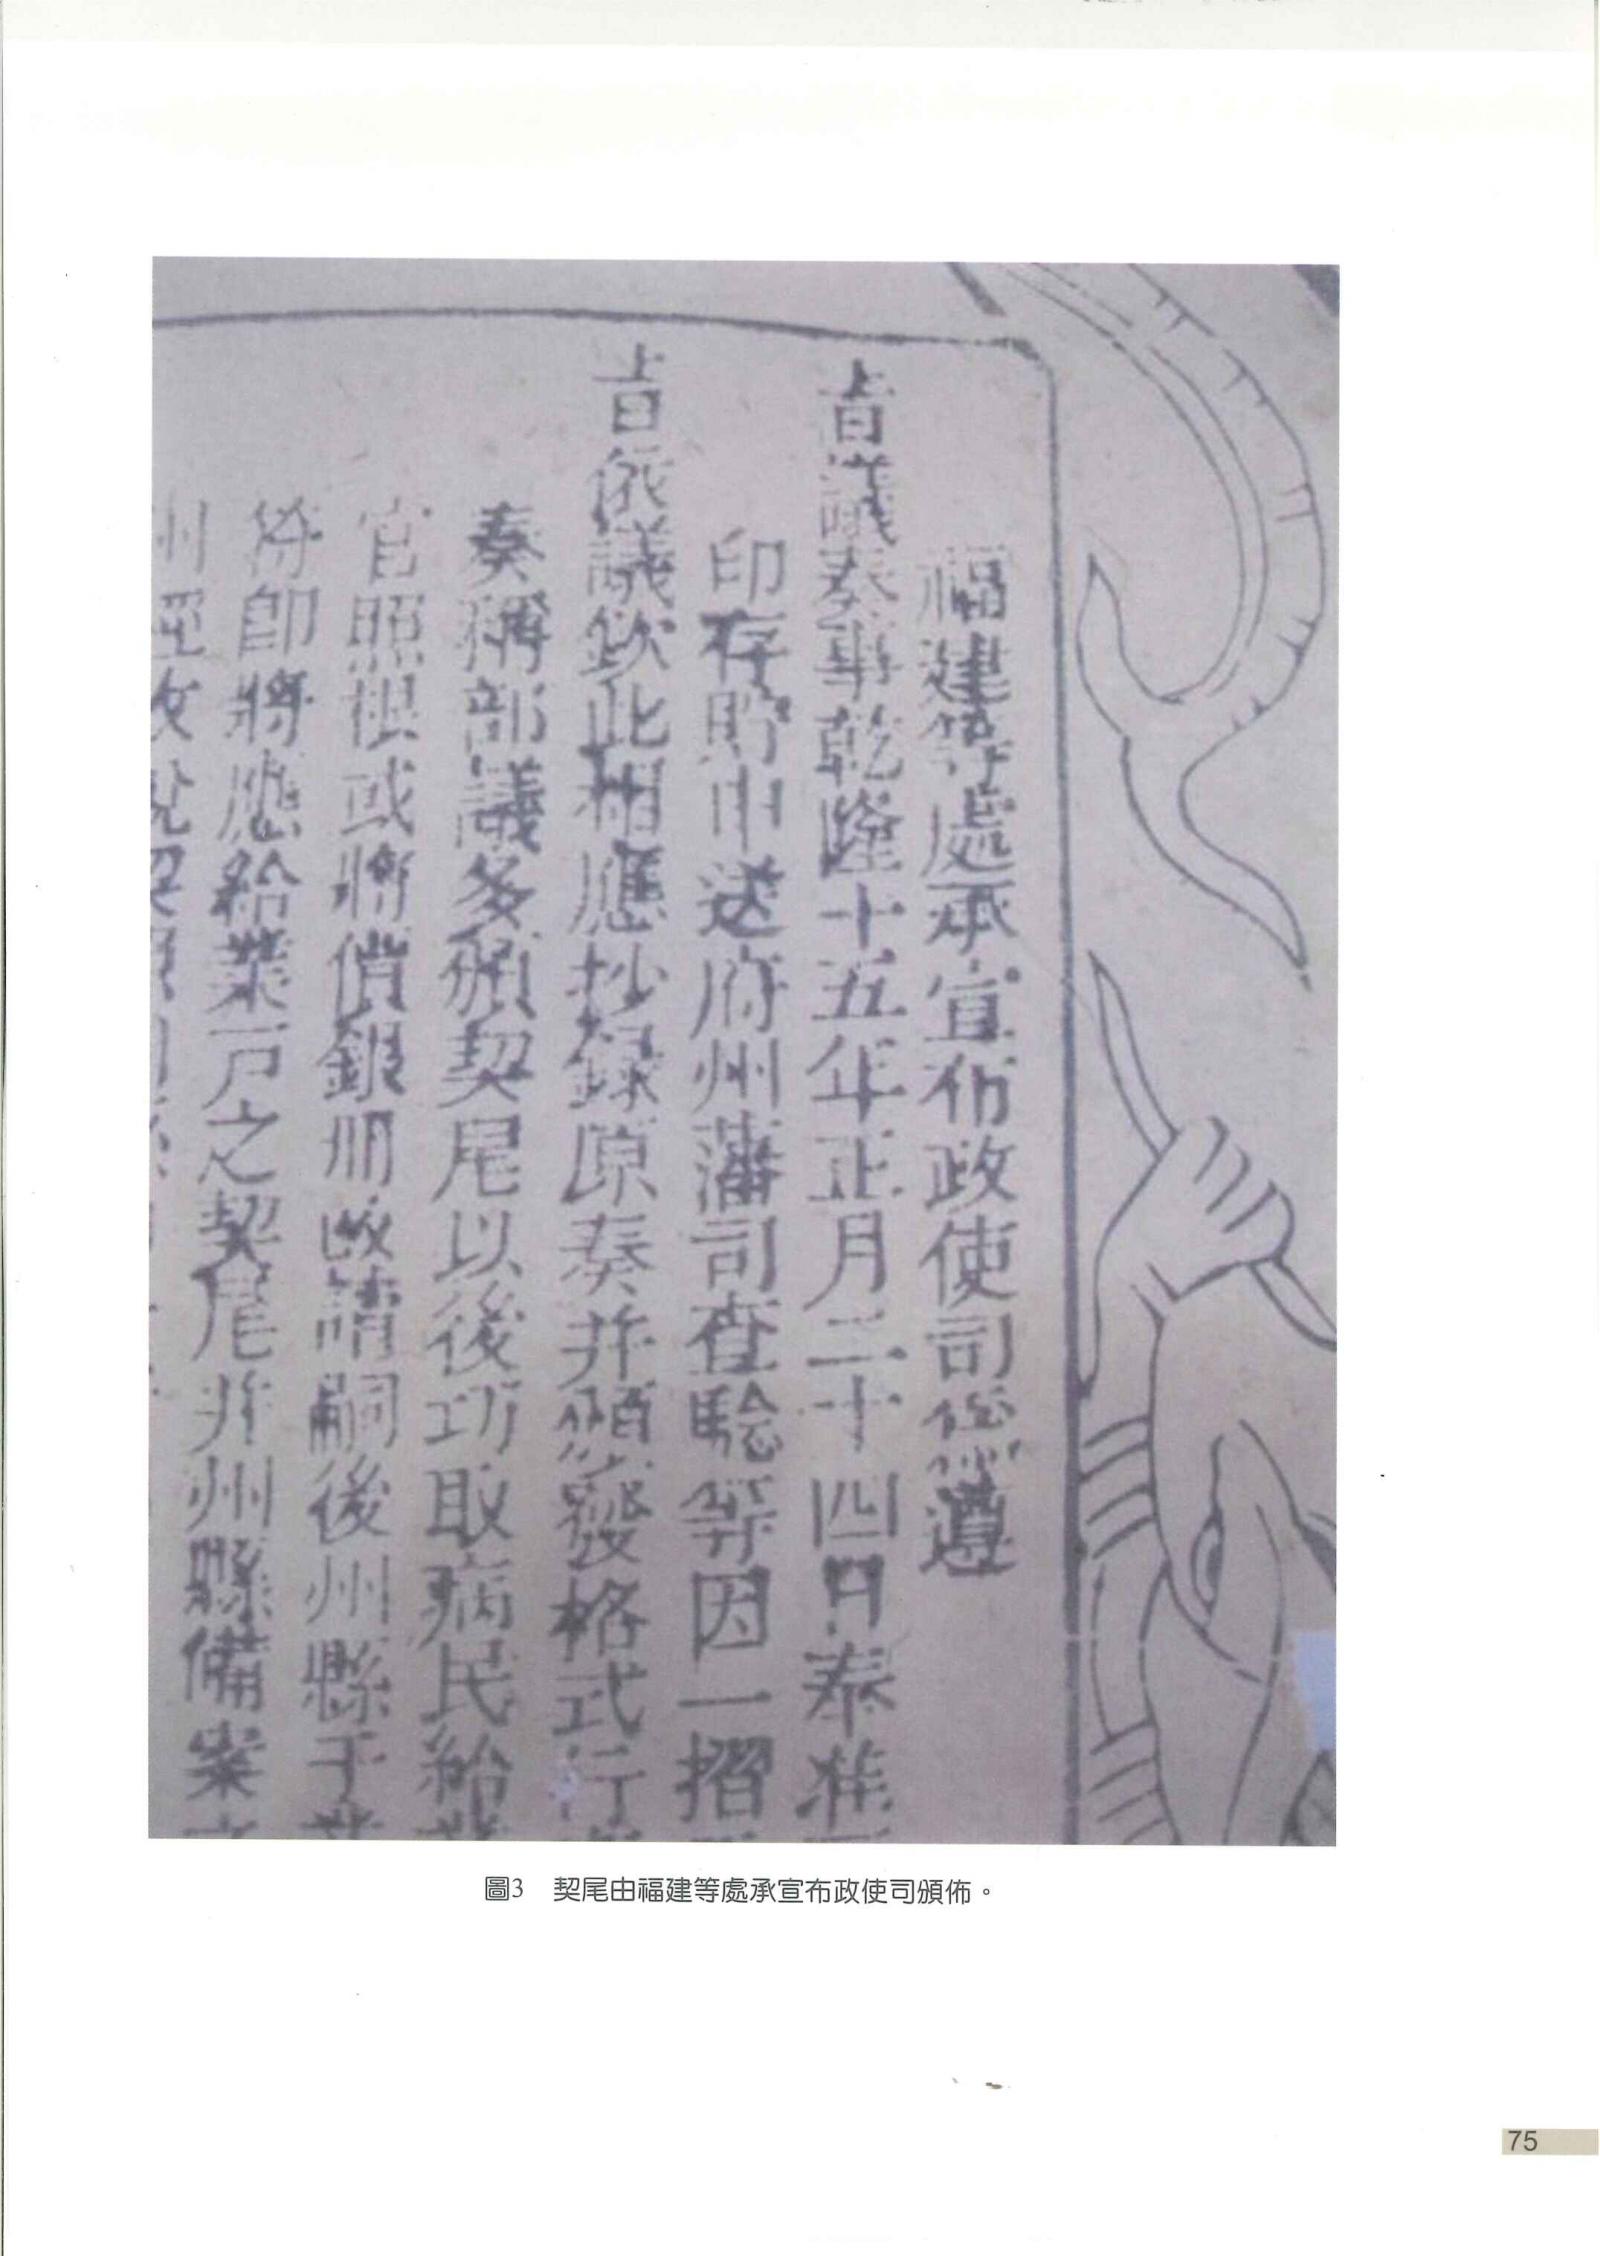 福建等處承宣布政使司為遵
旨議奏事乾隆十五年正月二十四日奉准
印存貯申送府州藩司查驗等因一摺
旨依議欽此相應抄錄原奏并頒發格式行
奏稱部議多頒契尾以後巧取病民給
官照根或將價銀冊改請嗣後州縣于
得即將應給業戶之契尾并州縣備案
圖3 契尾由福建等處承宣布政使司頒佈。
75